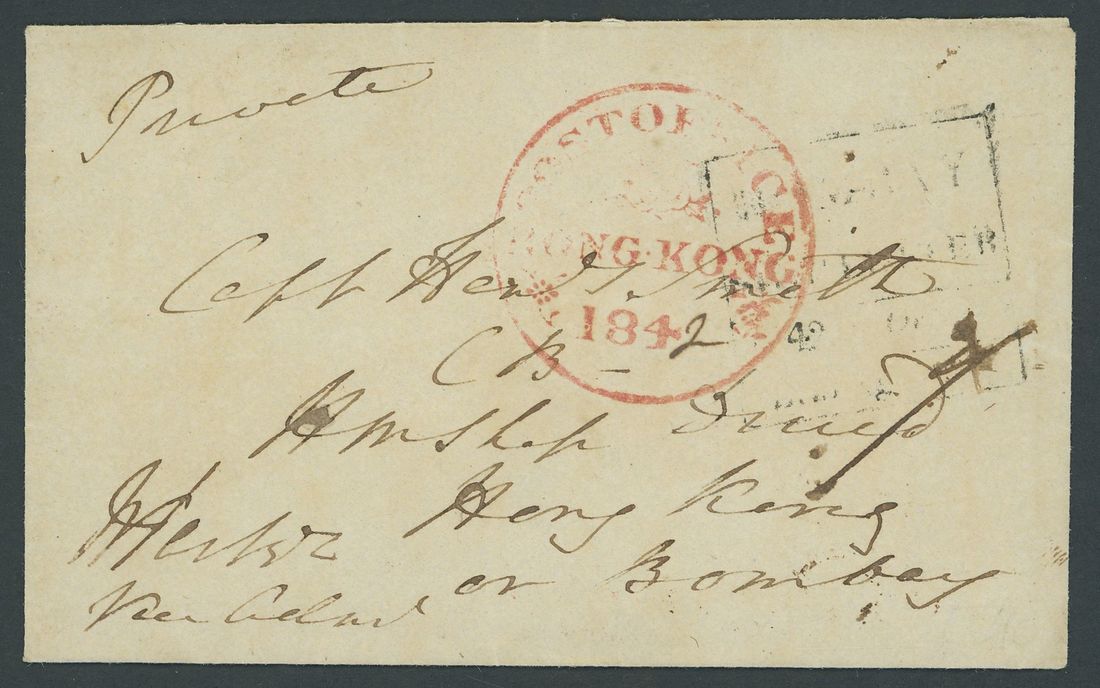 Private
POST OFFICE
HONG·KONG
1842
BOMBAY
LETTER
42
Capt Henry Smith
CB
HM Ship Druid
Hong Kong
or Bombay